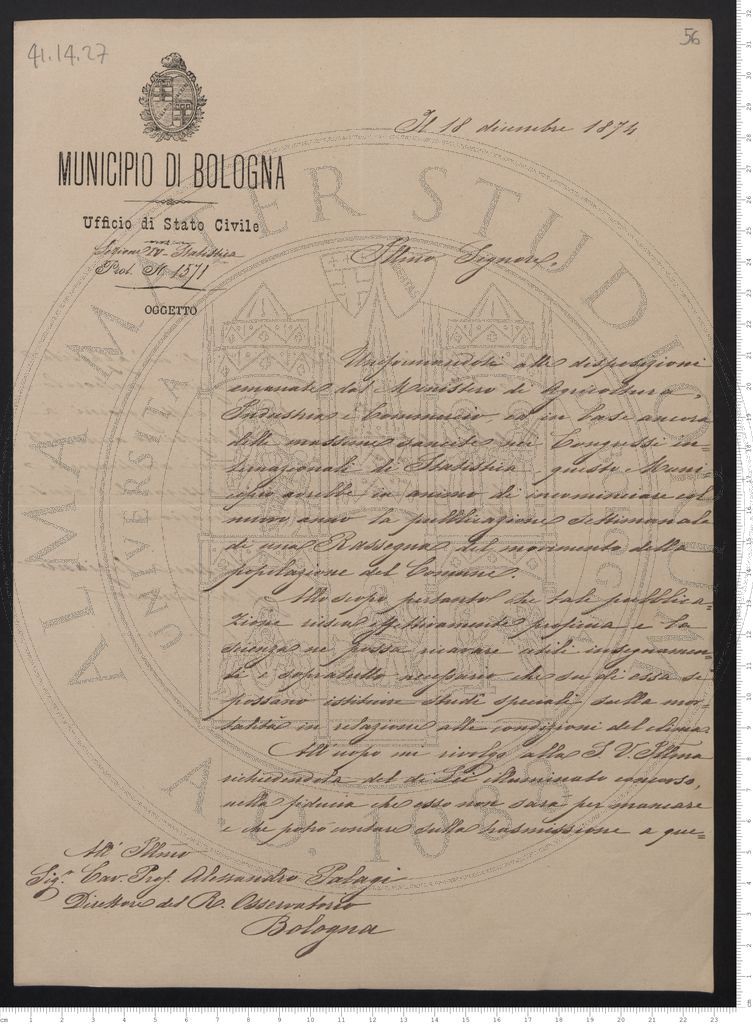 41.14.27
56
Il 18 dicembre 1874
MUNICIPIO DI BOLOGNA
Ufficio di Stato Civile
Sezione IV - Statistica
Prot. N. 1571
OGGETTO
Illmo Signore.
Uniformandosi alle disposizioni
emanate dal Ministero di Agricoltura,
Industria e Commercio, ed in base ancora
delle massime sancite nei Congressi in=
ternazionali di Statistica, questo Muni=
cipio avrebbe in animo di incominciare col
nuovo anno la pubblicazione settimanale
di una Rassegna del movimento della
popolazione del Comune.
Allo scopo pertanto che tale pubblica=
zione riesca effettivamente proficua e la
scienza ne possa ricavare utili insegnamen=
ti è sopratutto necessario che su di essa si
possano istituire studi speciali sulla mor=
talità in relazione alle condizioni del clima.
All'uopo mi rivolgo alla S. V. Illma
richiedendola del di Lei illuminato concorso,
nella fiducia che esso non sarà per mancare
e che potrò contare sulla trasmissione a que=
All' Illmo
Sigr. Cav. Prof. Alessandro Palagi
Direttore del R. Osservatorio
Bologna
ALMA MATER STUDIORUM
UNIVERSITÀ
A.D. 1088